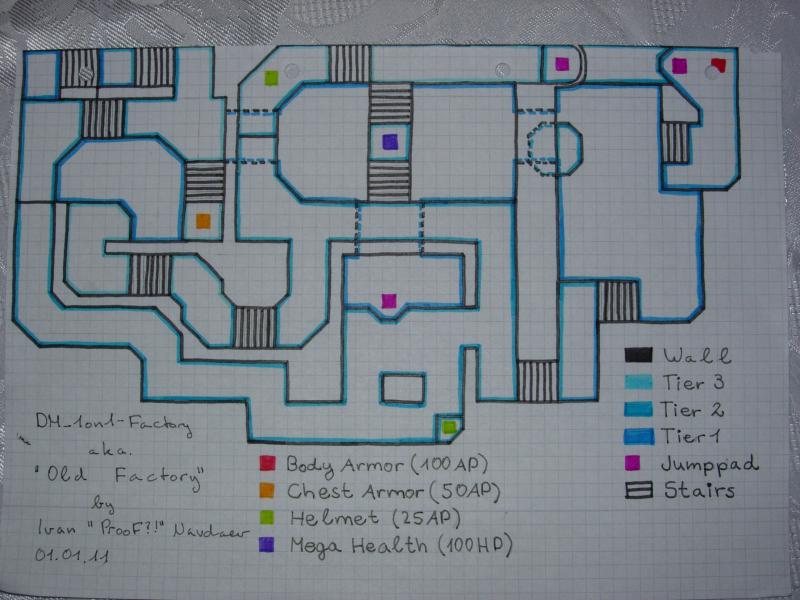 DM_1on1-Factory
aka.
"Old Factory"
by
Ivan "ProoF?!"
01.01.11
Body Armor (100AP)
Chest Armor (50AP)
Helmet (25AP)
Mega Health (100HP)
Wall
Tier 3
Tier 2
Tier 1
Jumppad
Stairs